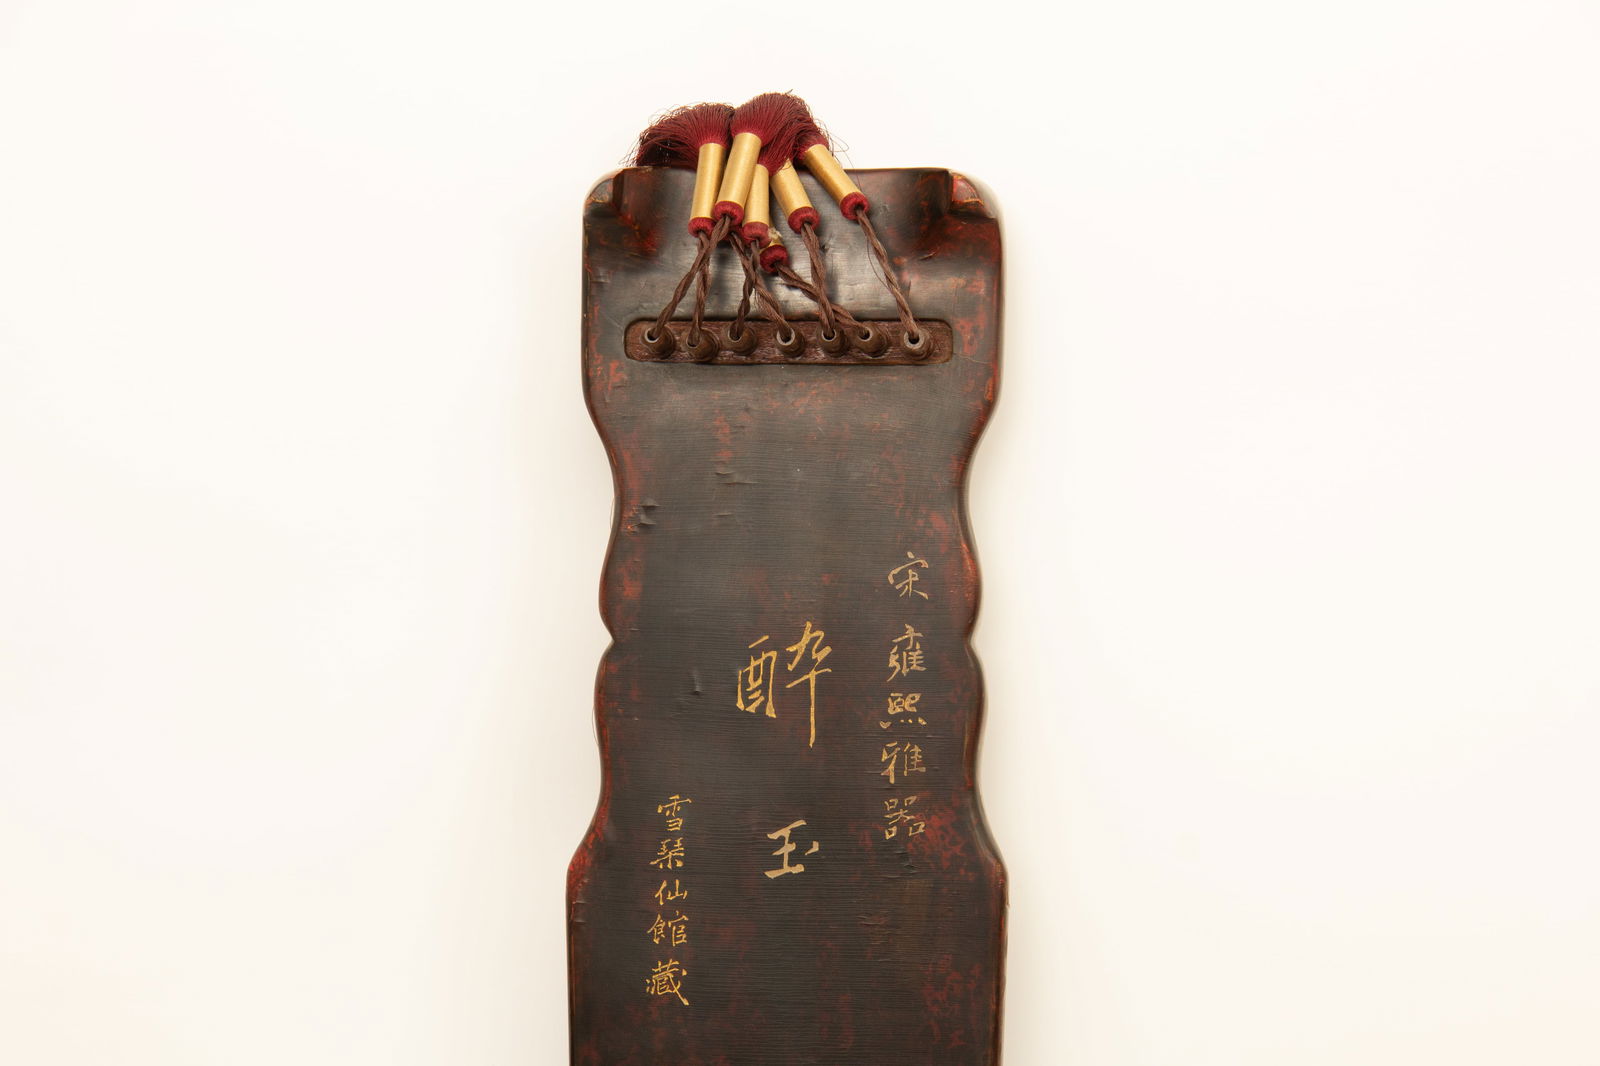 宋雍熙雅器
酔玉
雪琹仙館藏